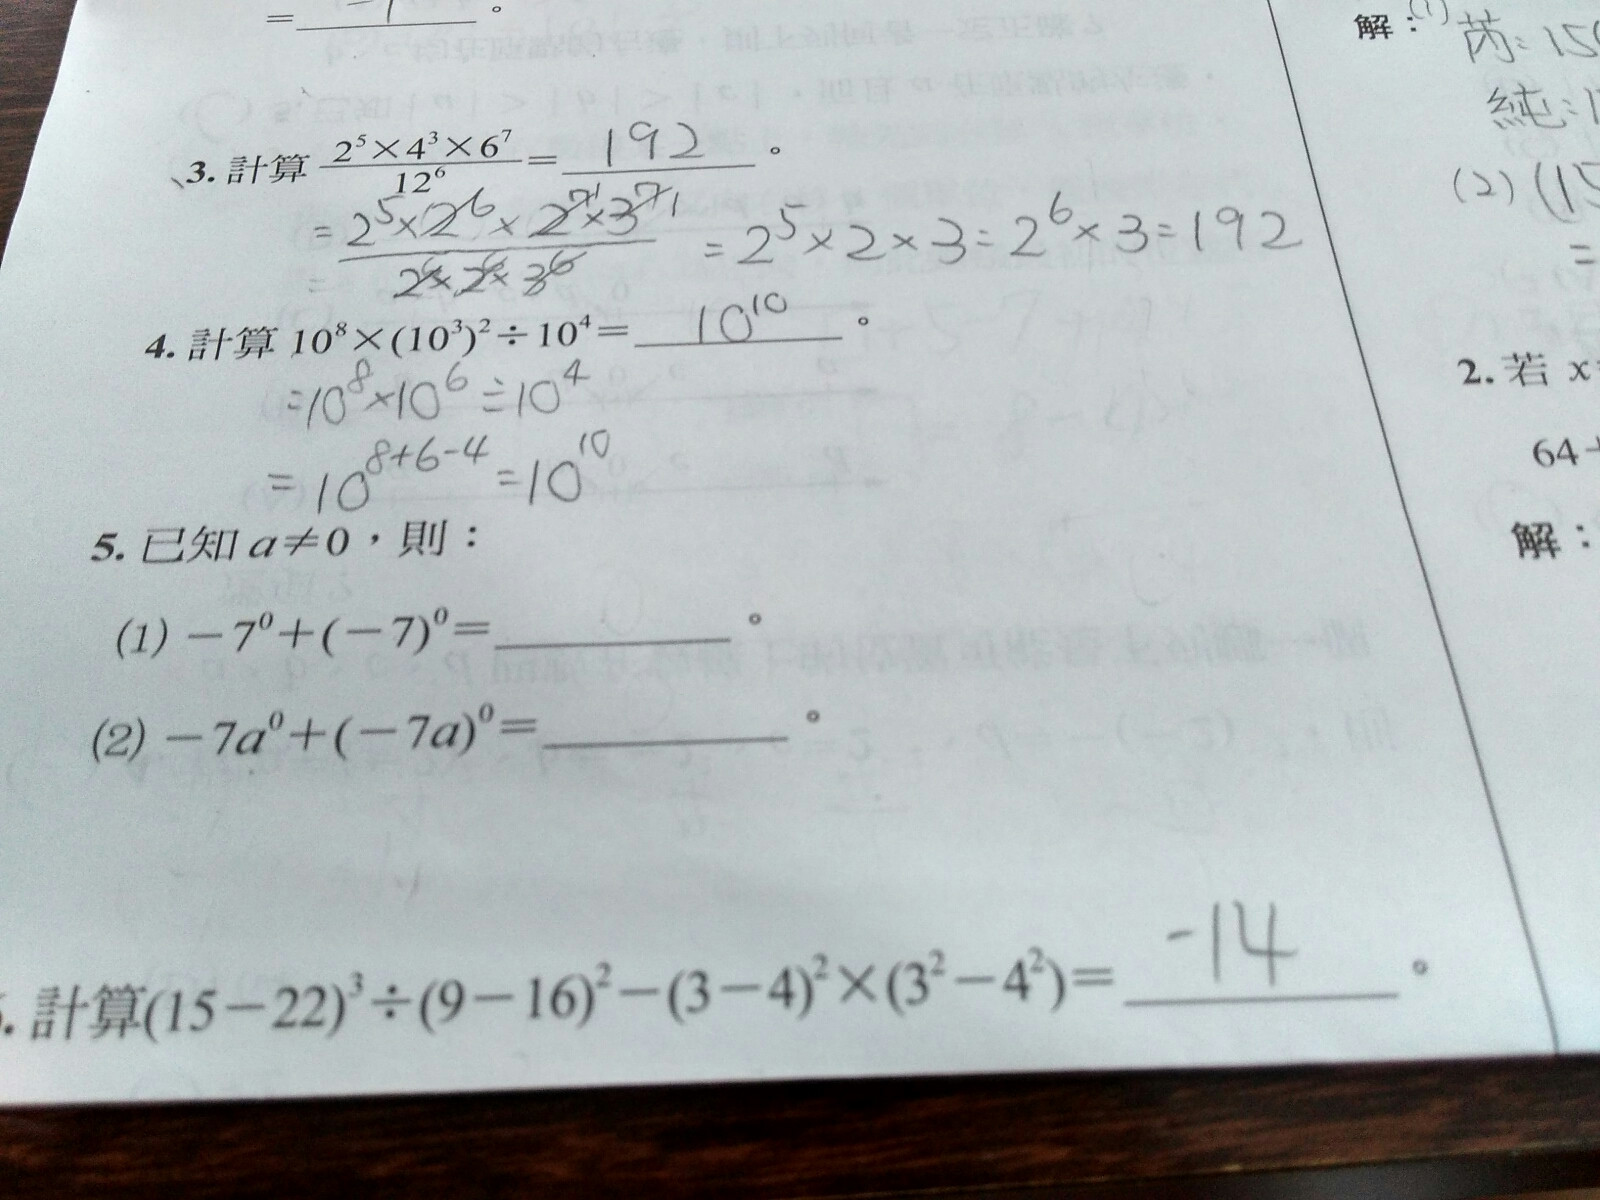 = -1 。
3. 計算 2⁵×4³×6⁷/12⁶ = 192 。
= 2⁵×2⁶×2⁷×3⁷/2⁶×2⁶×3⁶ = 2⁵×2×3=2⁶×3=192
4. 計算 10⁸×(10³)²÷10⁴= 10¹⁰ 。
=10⁸×10⁶÷10⁴
=10⁸⁺⁶⁻⁴=10¹⁰
5. 已知 a≠0,則:
(1) -7⁰+(-7)⁰= 。
(2) -7a⁰+(-7a)⁰= 。
. 計算(15-22)³÷(9-16)²-(3-4)²×(3²-4²)= -14 。
解:(1)
芮: 15
純:1
(2) (15
=
2. 若 x
64+
解: